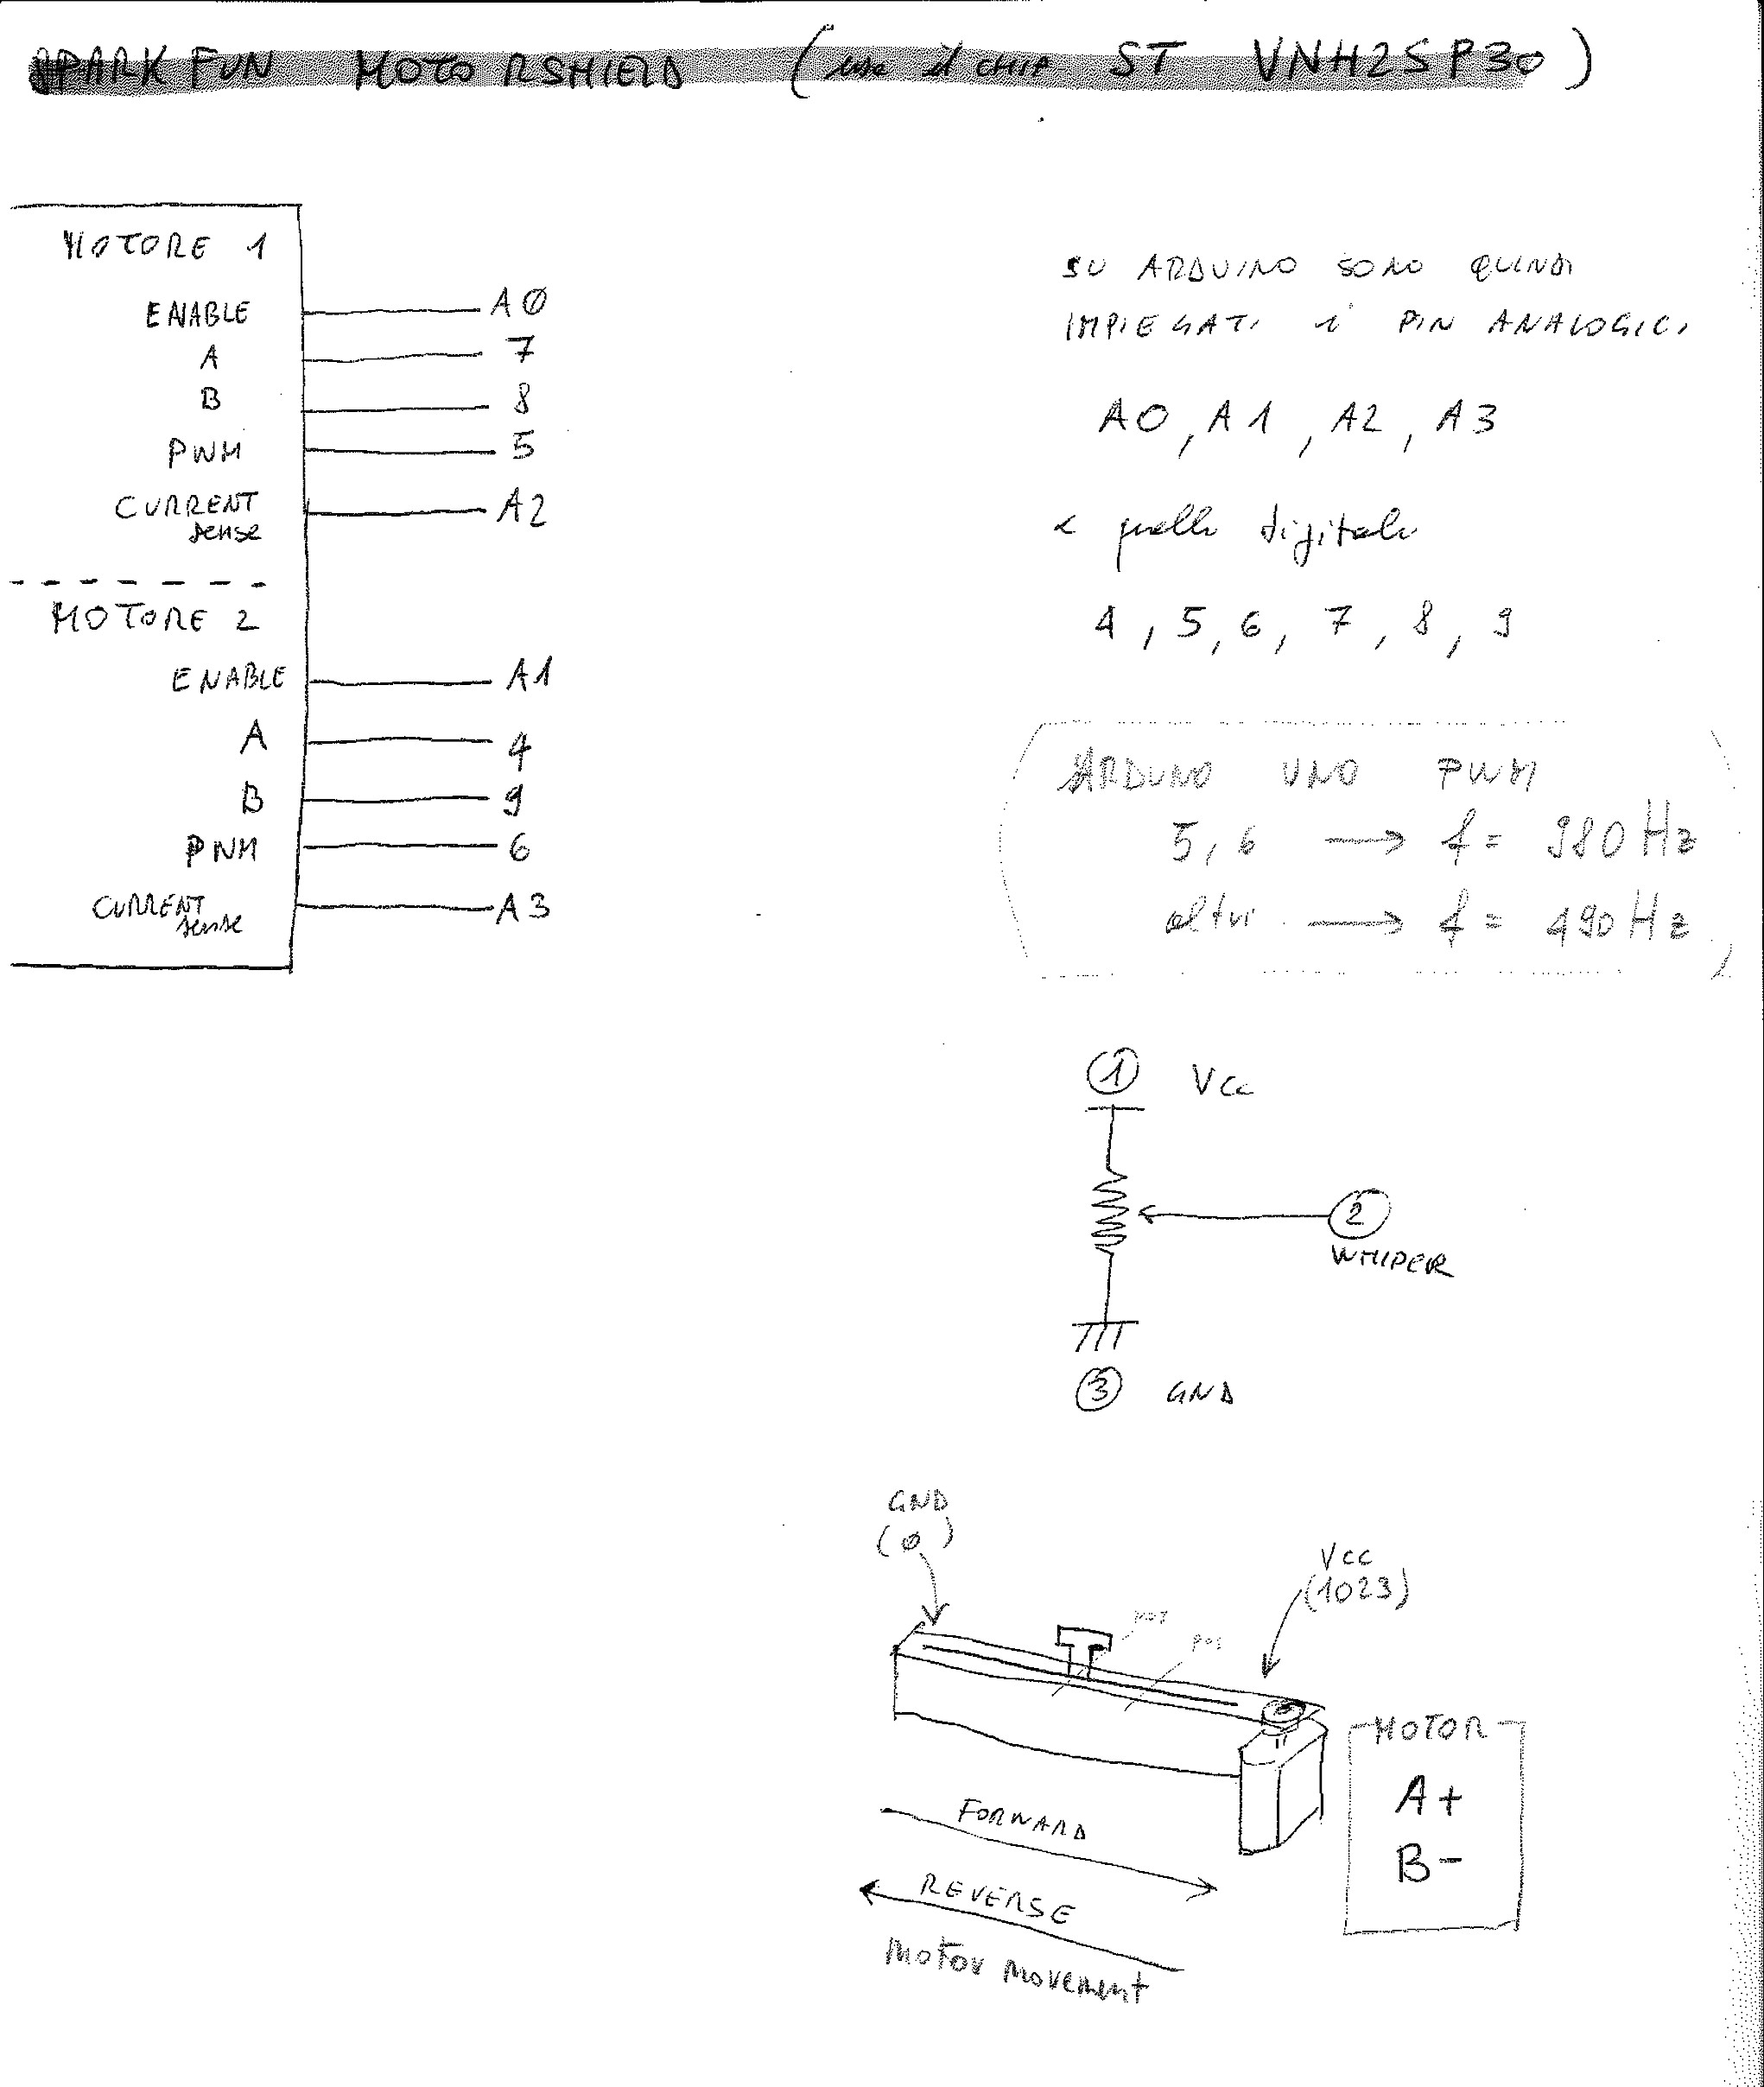 SPARK FUN MOTORSHIELD (usa il CHIP ST VNH2SP30)
MOTORE 1
ENABLE A0
A 7
B 8
PWM 5
CURRENT sense A2
MOTORE 2
ENABLE A1
A 4
B 9
PWM 6
CURRENT sense A3
SU ARDUINO SONO QUINDI
IMPIEGATI i PIN ANALOGICI
A0, A1, A2, A3
e quelli digitali
4, 5, 6, 7, 8, 9
ARDUNO UNO PWM
5, 6 → f = 980 Hz
altri → f = 490 Hz
1 Vcc
2
WHIPER
3 GND
GND
(0)
VCC
(1023)
POS
MOTOR
A+
B-
FORWARD
REVERSE
Motor movement